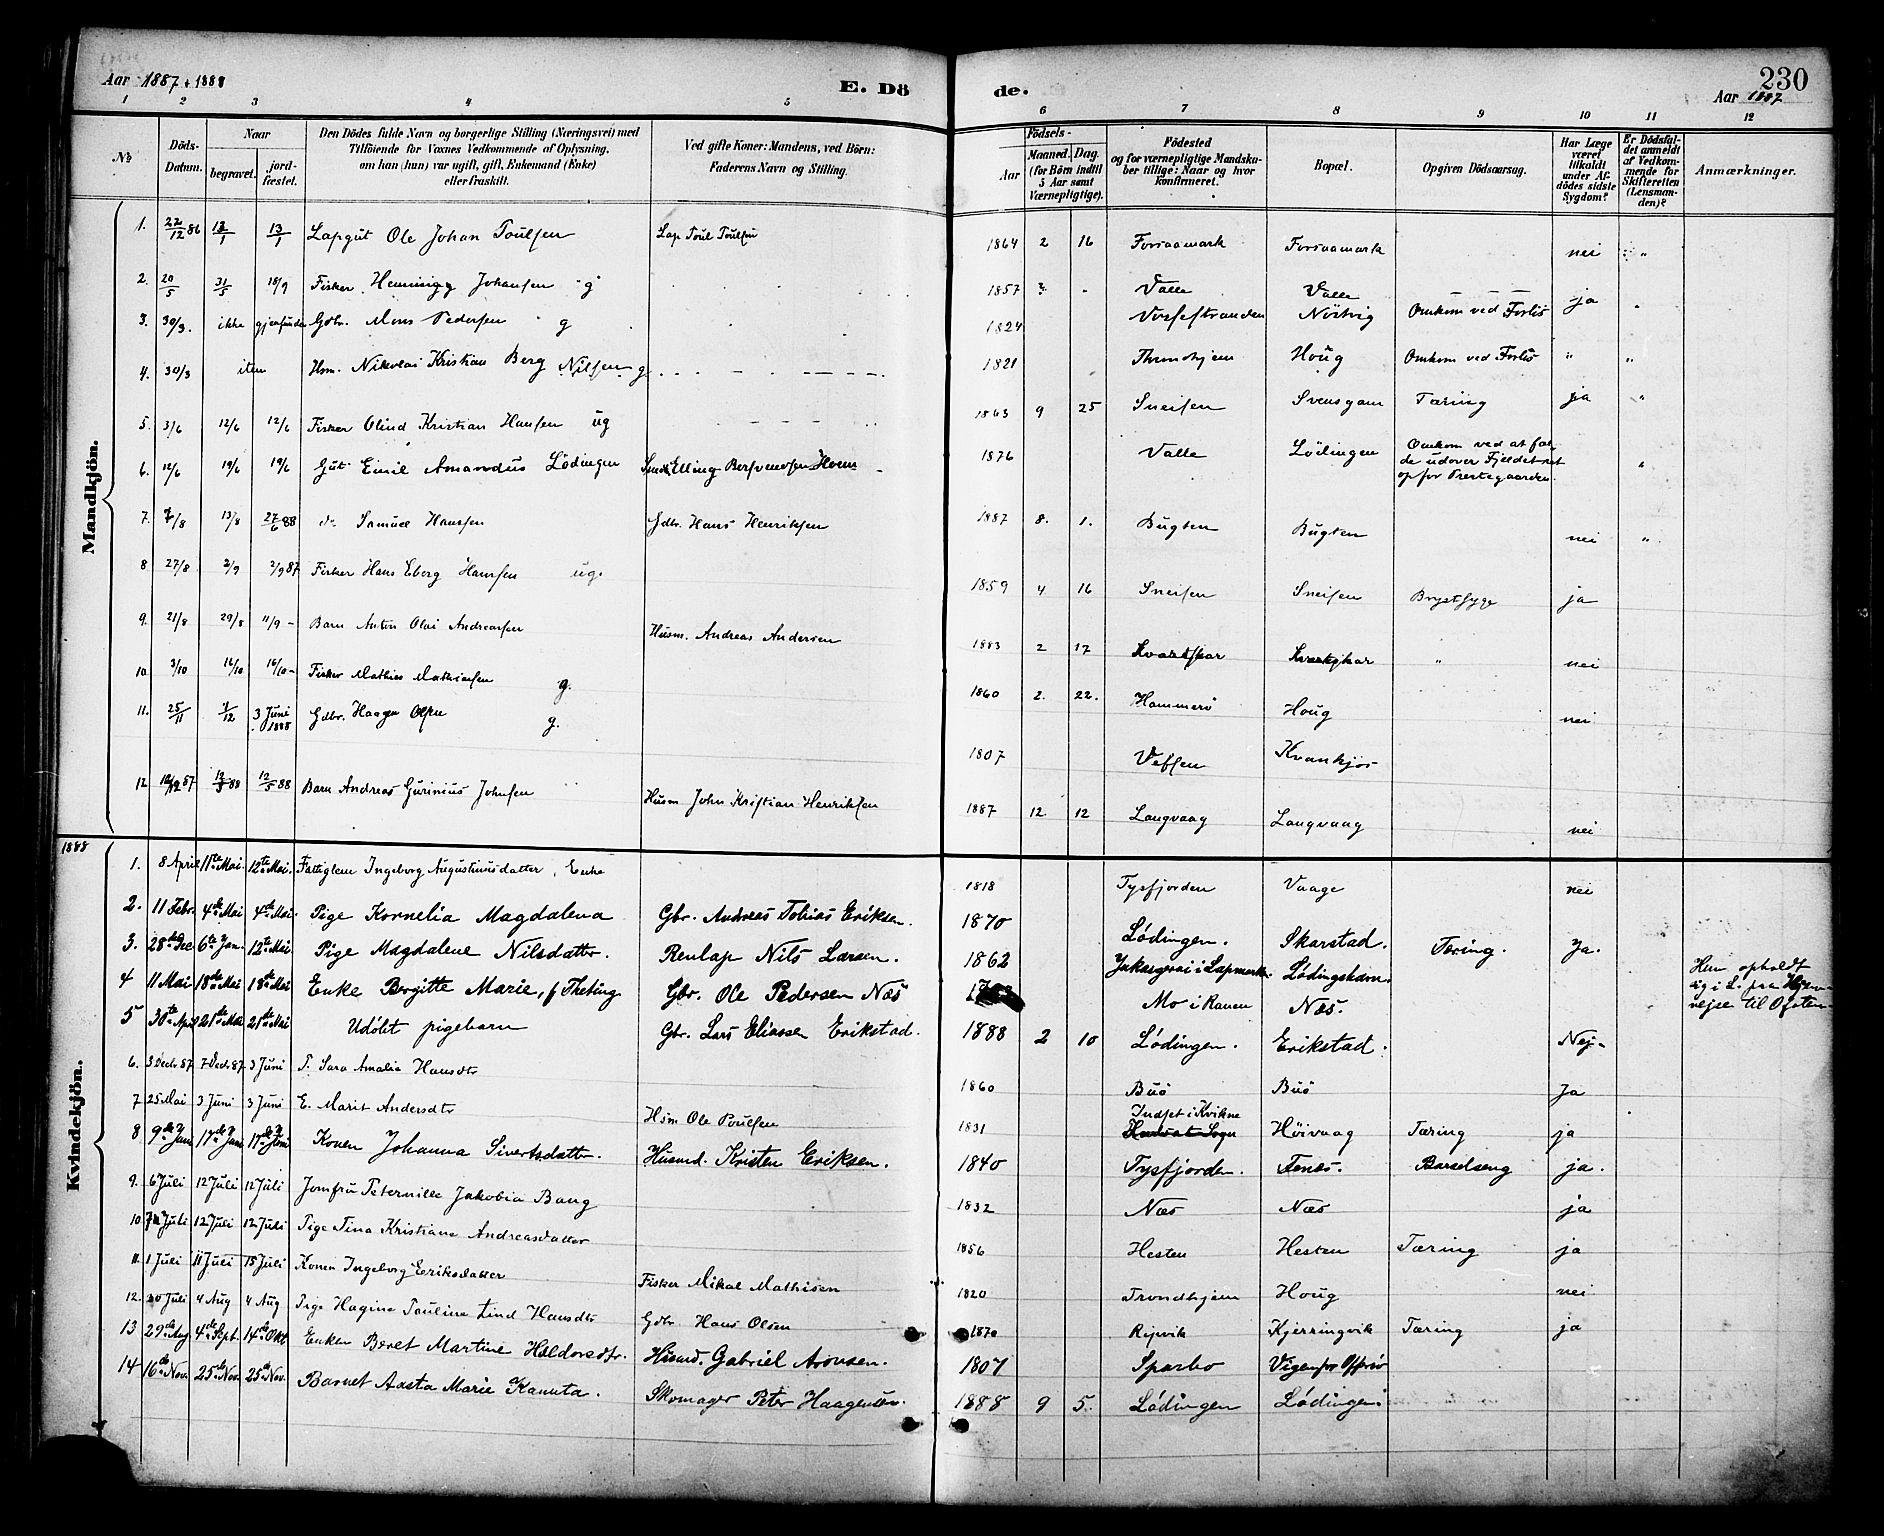 Aar 1887 + 1888
E. Dö
de.
230
Aar 1887
1 2 3 4 5 6 7 8 9 10 11 12
No
Döds-
Datum.
Naar
begravet.
jord-
fæstet.
Den Dödes fulde Navn og borgerlige Stilling (Næringsvei) med
Tilföiende for Voxnes Vedkommende af Oplysning,
om han (hun) var ugift, gift, Enkemand (Enke)
eller fraskilt.
Ved gifte Koner: Mandens, ved Börn:
Faderens Navn og Stilling.
Födsels-
Aar
Maaned. Dag.
(for Börn indtil
5 Aar samt
Værnepligtige).
Födested
og for værnepligtige Mandska-
ber tillige: Naar og hvor
konfirmeret.
Bopæl.
Opgiven Dödsaarsag.
Har Læge
været
tilkaldt
under Af-
dödes sidste
Sygdom?
Er Dödsfal-
det anmeldt
af Vedkom-
mende for
Skifteretten
(Lensman-
den)?
Anmærkninger.
Mandkjön.
1. 22/12 86 13/1 13/1 Lapgut Ole Johan Poulsen Lap Poul Poulsen 1864 2 16 Forsaamark Forsaamark nei "
2. 20/5 31/5 18/9 Fisker Henning Johansen g 1857 Valle Valle ja "
3. 30/3. ikke gjenfunden Gdbr. Mons Pedersen g 1824 Vossestranden Nöstvig Omkom ved Forlis
4. 30/3 item Hsm. Nikolai Kristian Berg Nilsen g 1821 Throndhjem Houg Omkom ved Forlis " "
5. 3/6 12/6 12/6 Fisker Olind Kristian Hansen ug 1863 9 25 Sneisen Svensgam Tæring ja "
6. 12/6 19/6 19/6 Gut Emil Amandus Lödingen Elling 1876 Valle Lödingen Omkom ved at fal-
de udover Fjeldet ret
op for Prestegaarden. "
7. /8 13/8 27/6 88 do Samuel Hansen Gdbr. Hans Henriksen 1887 8. 1. Bugten Bugten nei "
8 27/8 2/9 2/9 87 Fisker Hans Eberg Hansen ug. 1859 4 16 Sneisen Sneisen Brystsyge ja
9. 21/8 29/8 11/9 - Barn Anton Olai Andreassen Husm. Andreas Andersen 1883 2 17 Kvantskar " nei
10. 3/10 16/10 16/10 - Fisker Mathias Mathiassen g. 1860 2. 22. Hammerö Houg nei
11. 25/11 1/12 3 Juni 1888 Gdbr. Haagen Olsen g. 1807 Vefsen Kvankjos
12 12/12 87 12/5 88 12/5 88 Barn Andreas Gurinius Johnsen Husm John Kristian Henriksen 1887 12 12 Langvaag Langvaag nei
1888
Kvindekjön.
1. 8 April 11te Mai. 12te Mai. Fattiglem Ingeborg Augustinusdatter, Enke 1818 Tysfjorden Vaage nei
2. 11 Febr. 4de Mai 4de Mai. Pige Kornelia Magdalena Gbr. Andreas Tobias Eriksen. 1870 Lødingen. Skarstad. Tæring. Ja.
3. 28de Dec 6te Jan. 12te Mai Pige Magdalene Nilsdatter. Renlap Nils Larsen. 1862 i Lapmark. Lødingshavn Hun opholdt
sig i L. fra Hjem-
rejse til Ofoten
4 11 Mai 18de Mai 18de Mai Enke Birgitte Marie, f Theting Gbr. Ole Pedersen Næs Mo i Ranen Næs.
5 30te April 21de Mai 21de Mai Udøbt pigebarn Gbr. Lars Eliassen Erikstad. 1888 2 10 Lødingen. Erikstad. Nej.
6. 3 Decbr 87 7 Decbr 87 3 Juni P. Sara Amalia Hansdtr 1860 Buö Buö Ja
7 25 Mai 3 Juni 3 Juni E. Marit Andersdtr Hsm Ole Poulsen 1831 Indset i Kvikne Sogn Höivaag Tæring ja
8 9de Juni 17de Juni 17de Juni Konen Johanna Sivertsdatter. Husmd. Kristen Eriksen. 1840 Tysfjorden. Fenes. Barselseng ja.
9. 6 Juli 12 Juli 12 Juli Jomfru Peternille Jakobia Bang 1832 Næs Næs ja
10 7 Juli 12 Juli 12 Juli Pige Tina Kristiane Andreasdatter 1856 Hesten Hesten Tæring ja
11. 1 Juli 11 Juli 15 Juli Konen Ingeborg Eeriksdatter Fisker Mikal Mathisen 1820 Trondhjem Houg nei
12. 20 Juli 4 Aug 4 Aug Pige Hagine Pauline Lind Hansdtr Gdbr Hans Olsen 1870 Ripvik Kjerringvik Tæring ja
13 29de Aug 4de Sept. 14de Okt Enken Beret Martine Haldorsdtr. Husmd. Gabriel Aronsen. 1807 Sparbo
14 16de Nov. 25de Nov. 25de Nov. Barnet Aasta Marie Kanuta. Skomager Peter Haagensen. 1888 9 5. Lødingen Lødingen.